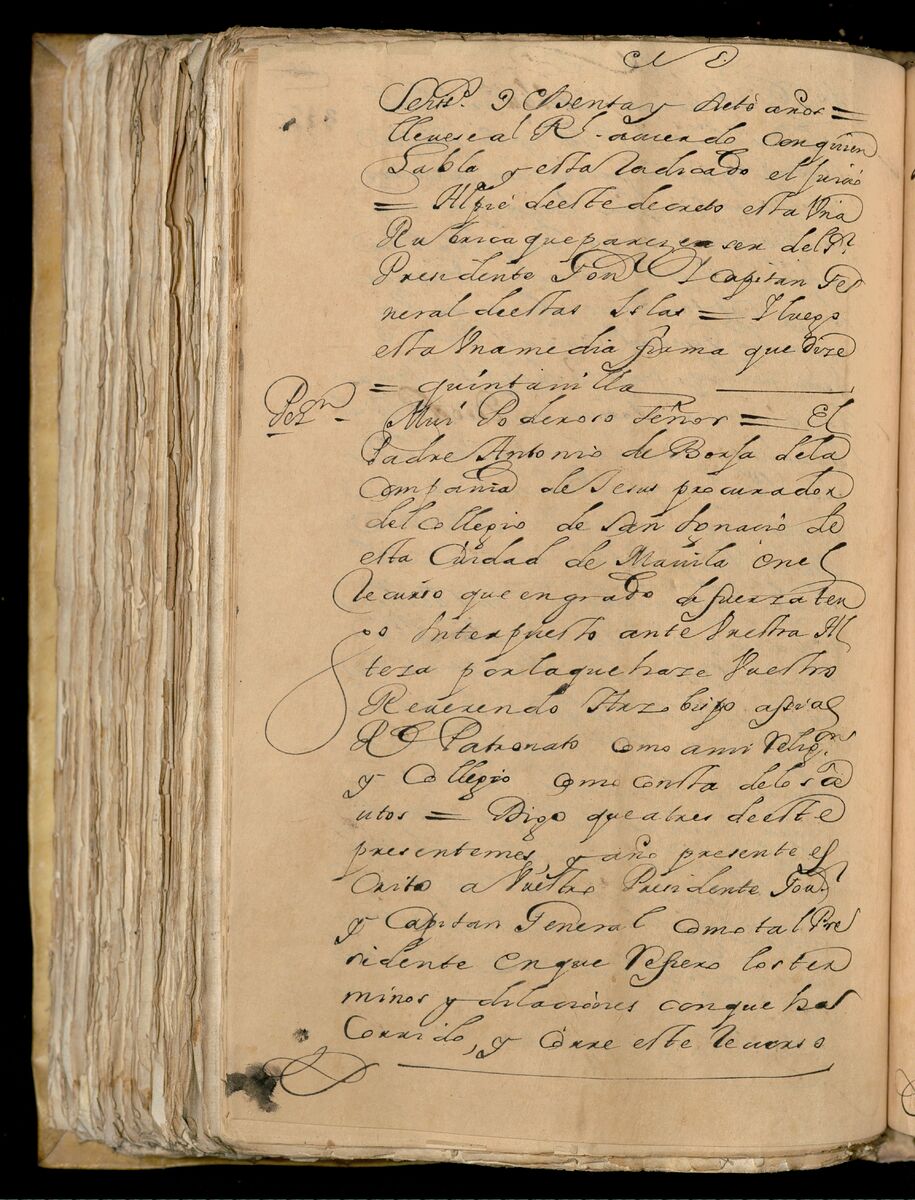 Sertt.º y Ochenta y siete años =
lleuese al R.l acuerdo con quien
habla y esta radicado el juicio
= Al pie de este decreto esta Vna
Rubrica que pareze ser del S.r
Presidente Gou.r Y Capitan Ge
neral de estas Islas = Y luego
esta Vna media firma que dize
= quintanilla
Pet.on
Mui Poderoso señor = El
Padre Antonio de Borja de la
Compañia de Jesus procurador
del Collegio de San Ignacio de
esta Ciudad de Manila en el
recurso que en grado de fuerza ten
go Interpuesto ante Vuestra Al
teza por la que haze Vuestro
Reuerendo Arzobispo assi al
Rl Patronato como a mi relig.on
y Collegio como consta de los a
utos = Digo que a tres de este
presente mes, y año presente es
crito a Vuestro Presidente Gou.r
y Capitan General como tal Pre
sidente en que refiero los ter
minos y dilaciones con que ha
Corrido, y Corre este recurso